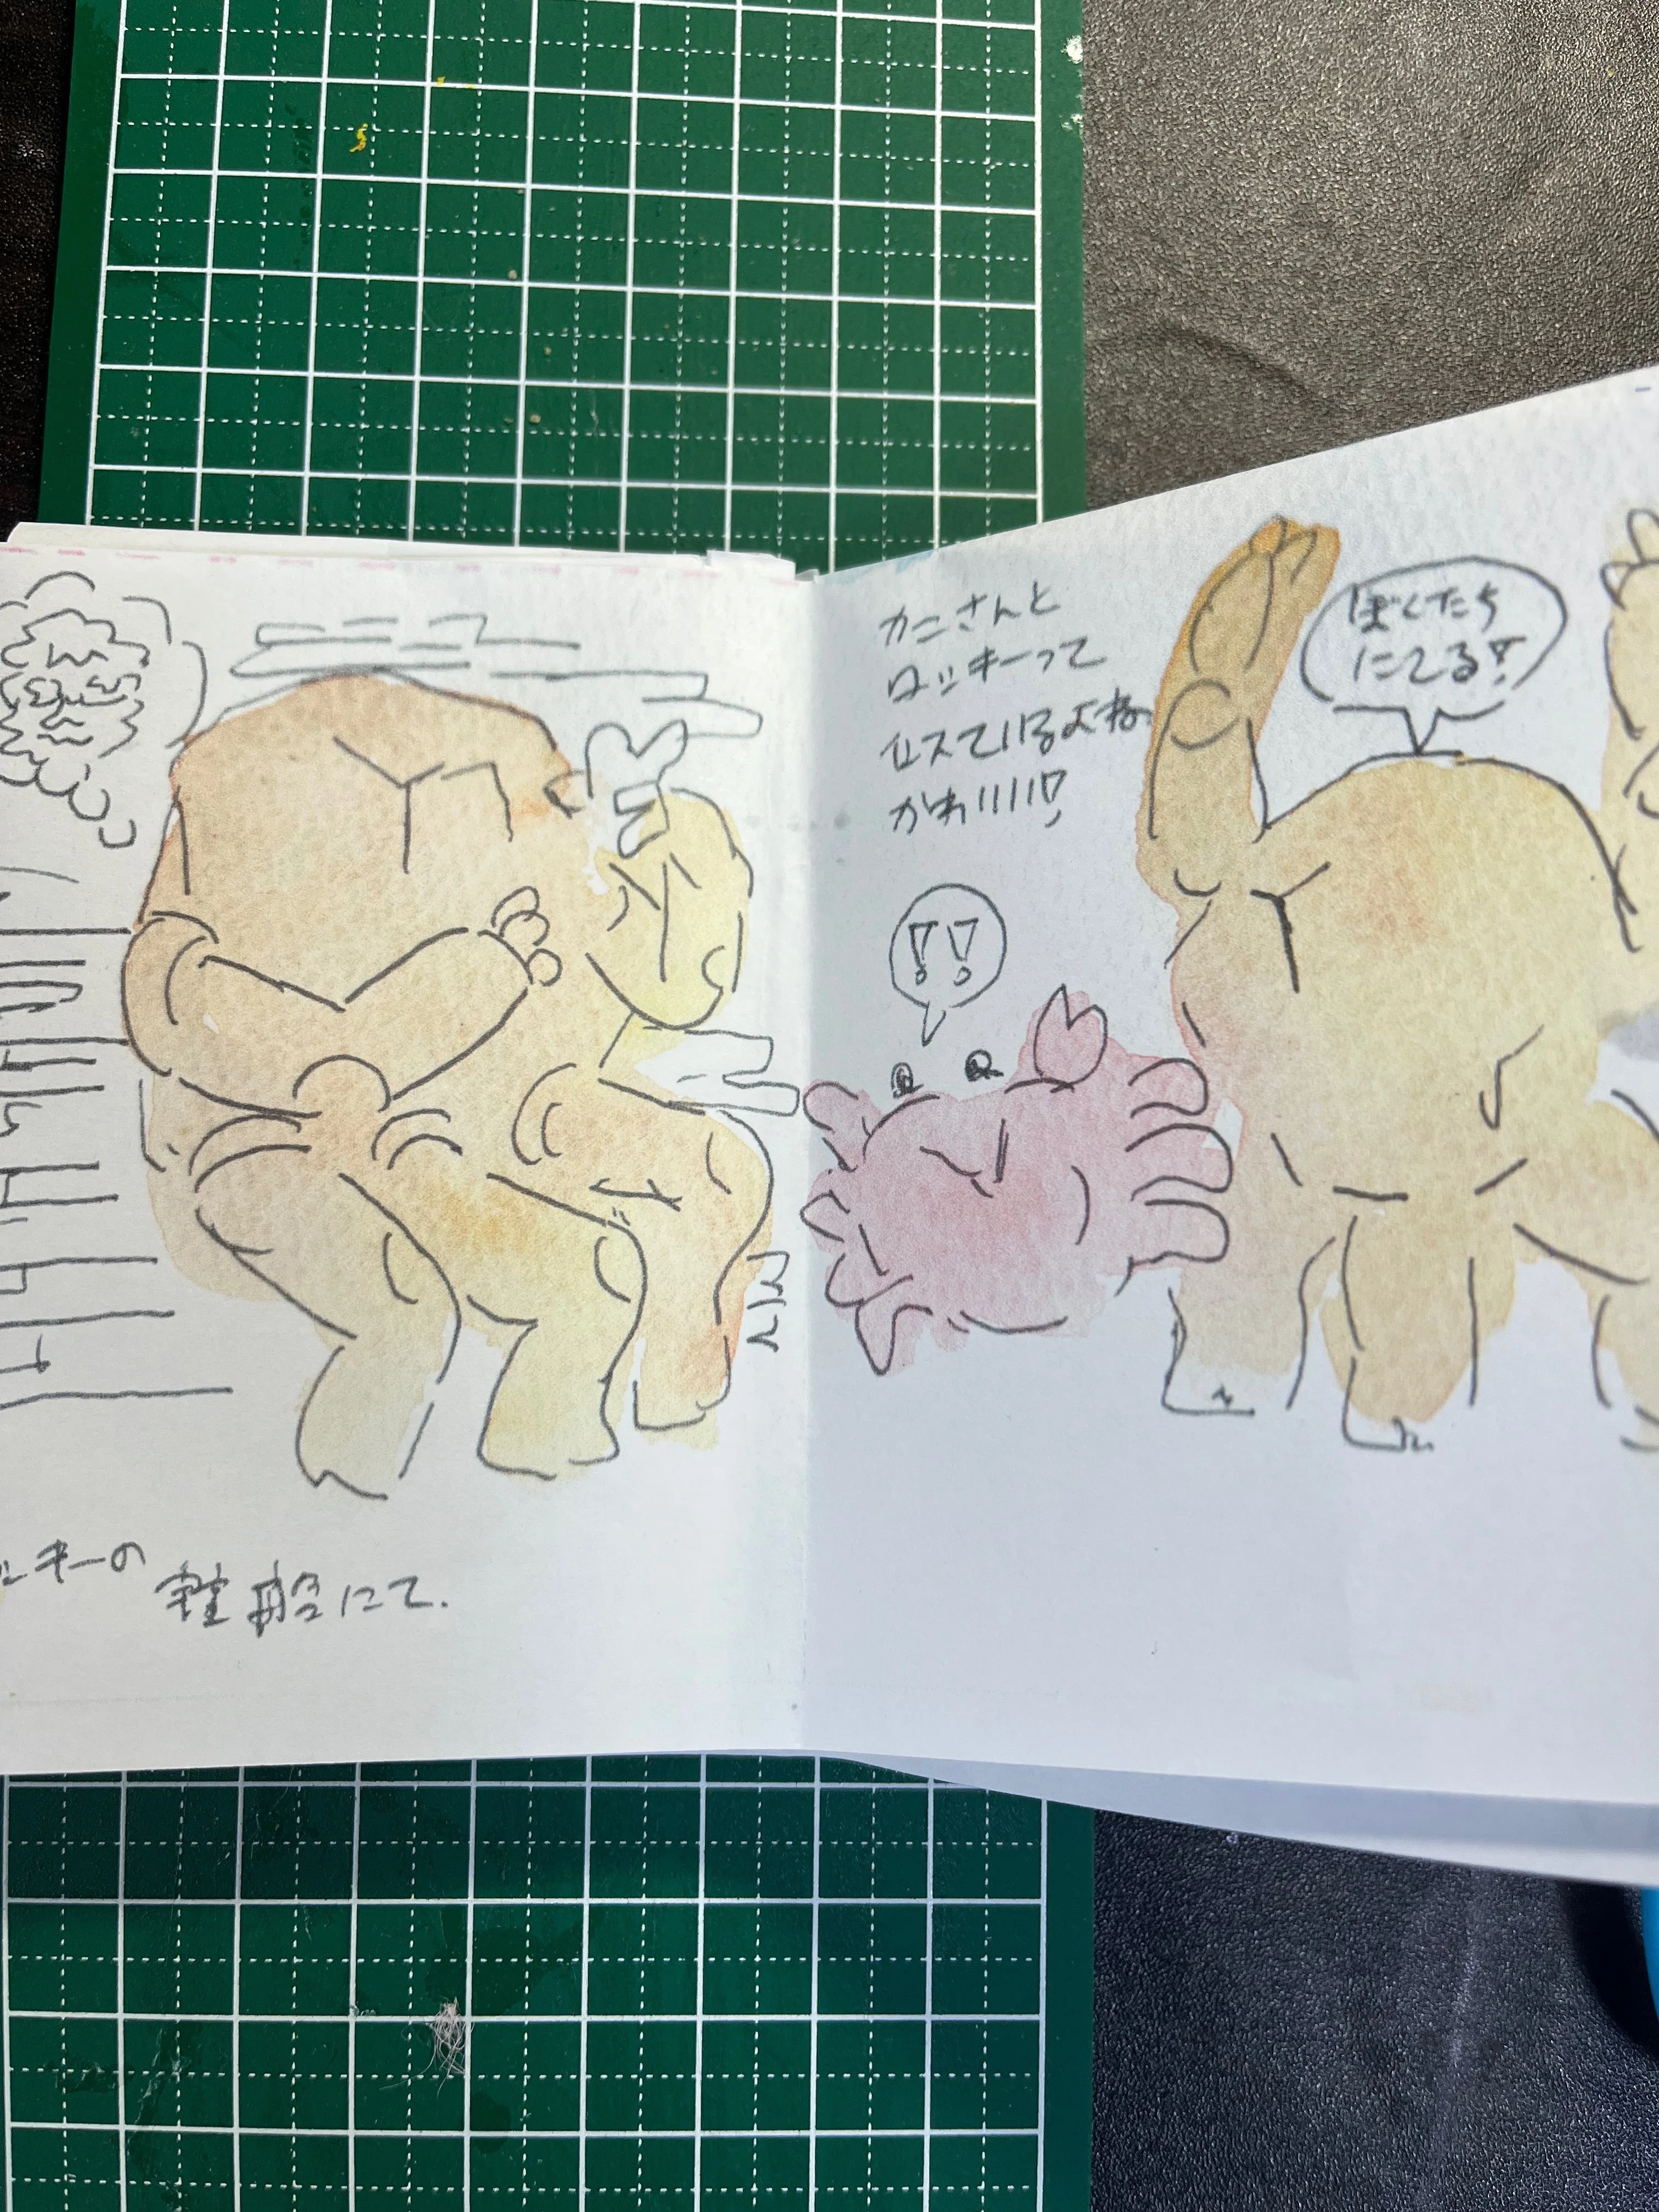 ッキーの
宇宙船にて.
カニさんと
ロッキーって
似ているよね
かわいい!
ぼくたち
にてる!
!!